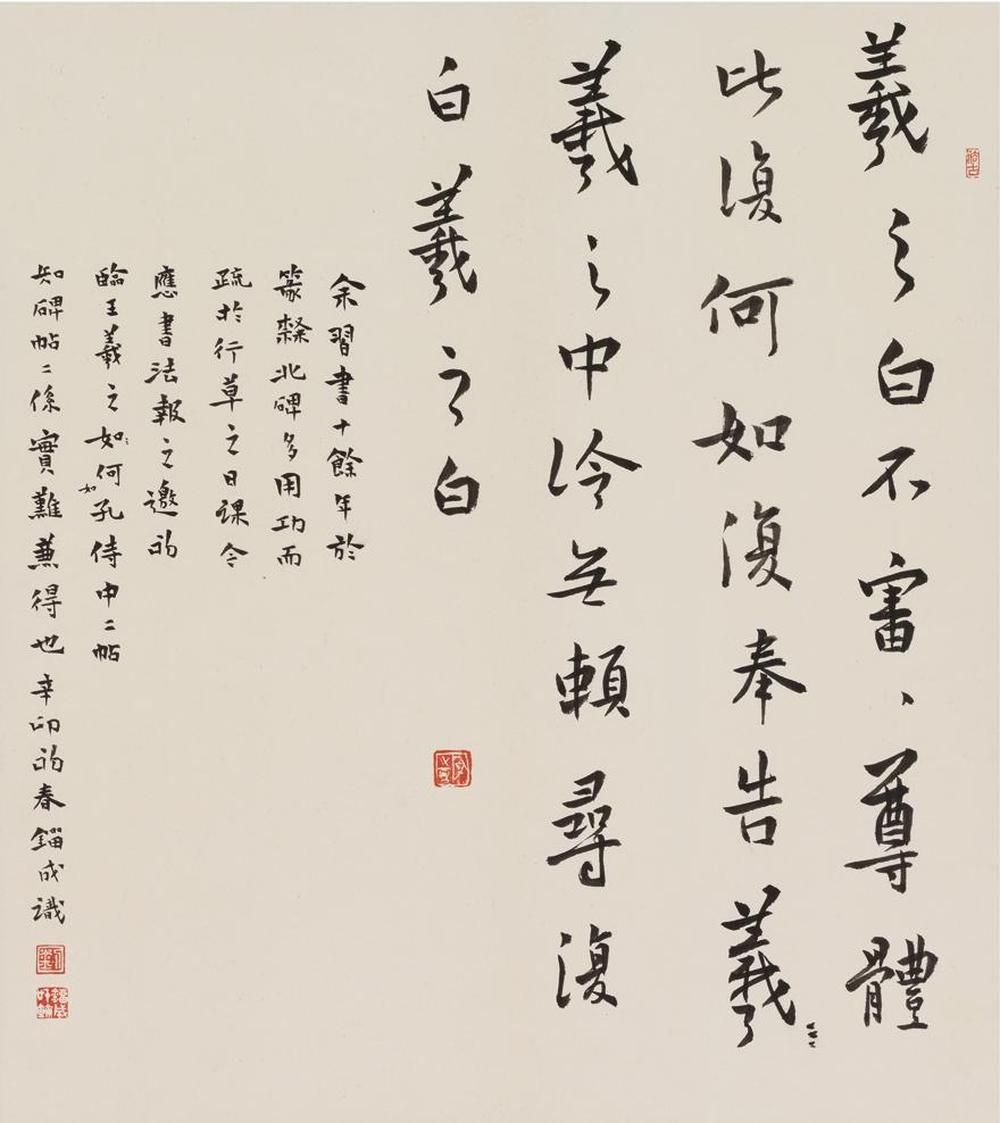 羲之白不審、尊體
此復何如復奉告羲
羲之中冷無賴尋復
白羲之白
余習書十餘年於
篆隸北碑多用功而
疏於行草之日課今
應書法報之邀初
臨王羲之如何如孔侍中二帖
知碑帖二係實難兼得也辛卯初春錙成識